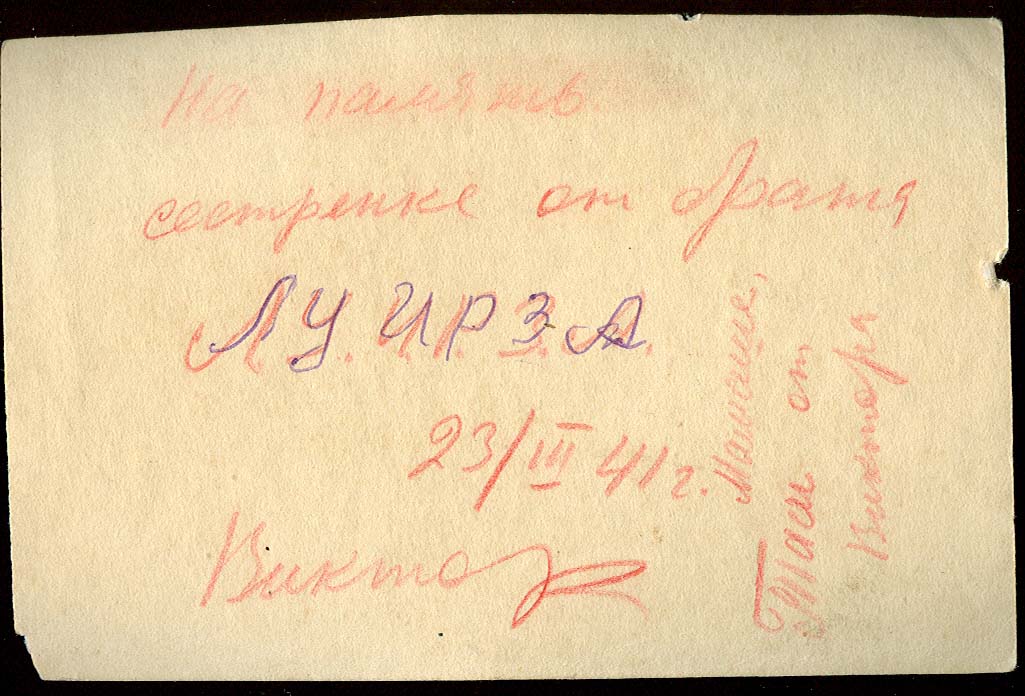 На память
сестренке от брата
Л У И Р З А
23/III 41 г.
Виктор
Мамаше,
Тасе от
Виктора